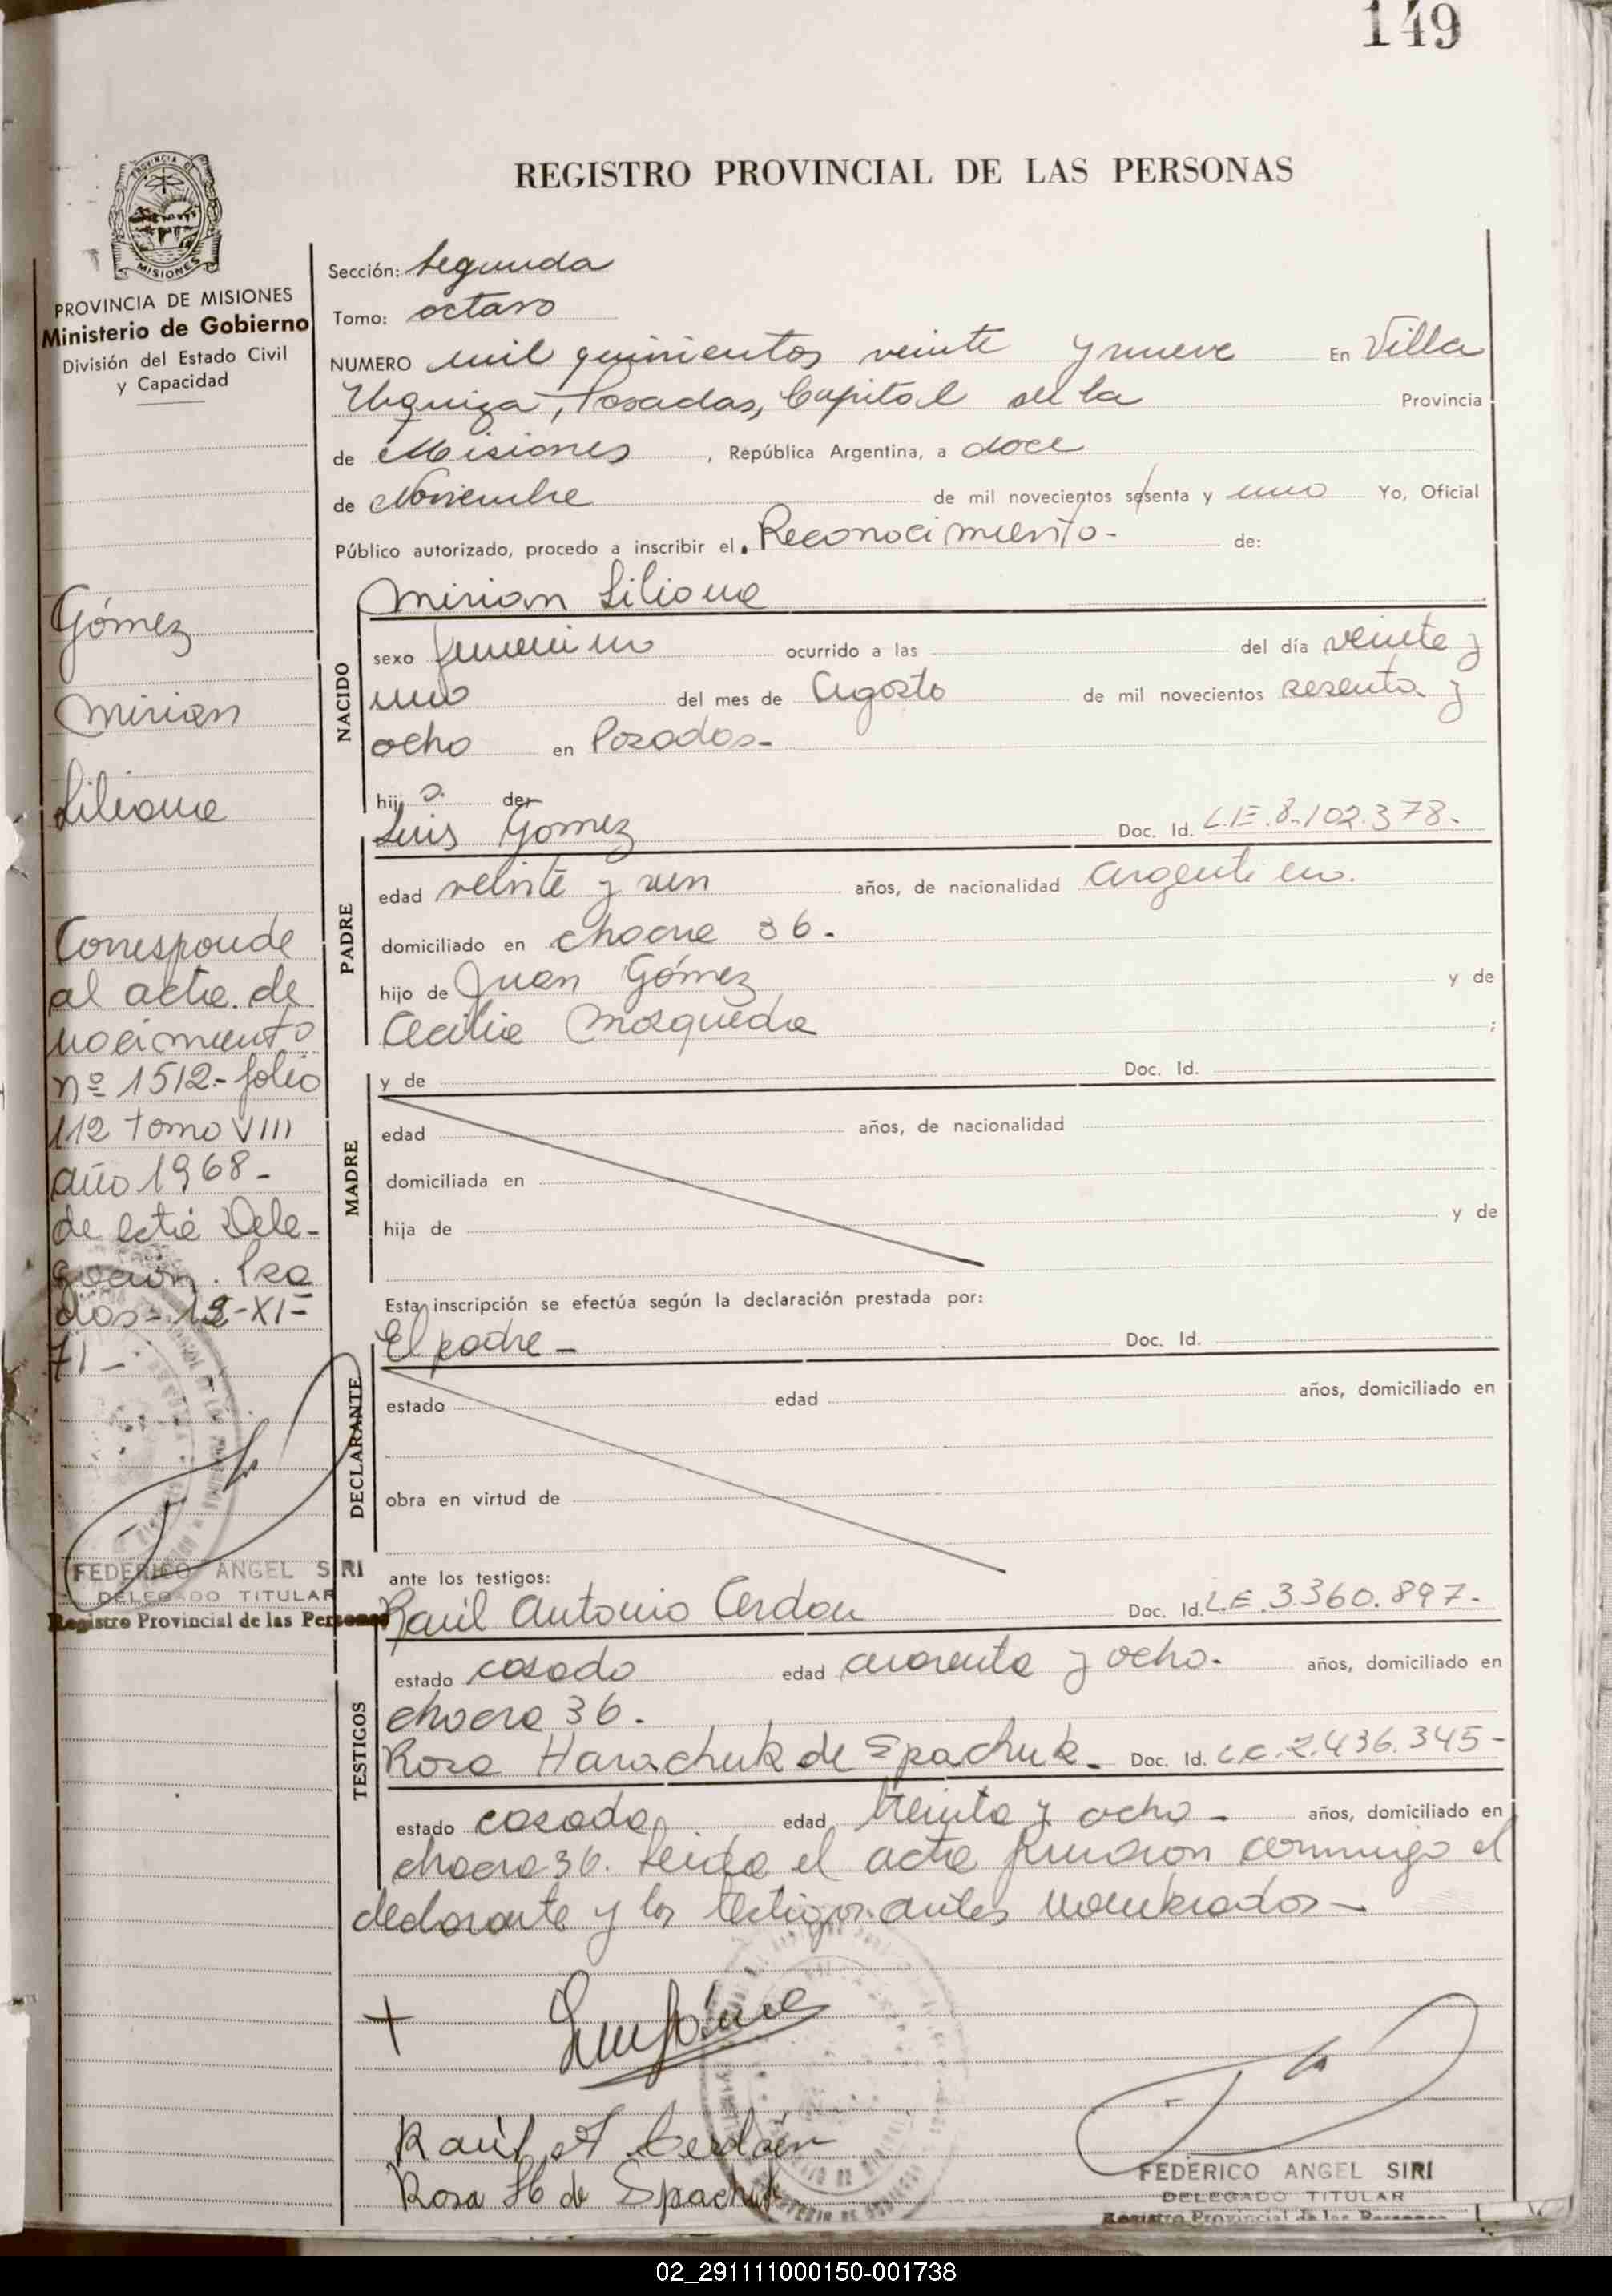 149
REGISTRO PROVINCIAL DE LAS PERSONAS
PROVINCIA DE
MISIONES
PROVINCIA DE MISIONES
Ministerio de Gobierno
División del Estado Civil
y Capacidad
Sección: Segunda
Tomo: octavo
NUMERO mil quinientos veinte y nueve En Villa
Urquiza, Posadas, Capital de la Provincia
de Misiones, República Argentina, a doce
de Noviembre de mil novecientos sesenta y uno Yo, Oficial
Público autorizado, procedo a inscribir el Reconocimiento- de:
Gómez
Mirian
Liliana
Corresponde
al acta de
nacimiento
nº 1512.- folio
112 tomo VIII
año 1968-
de esta Dele-
gación. Posa
das- 12-XI-
71-
FEDERICO ANGEL SIRI
DELEGADO TITULAR
Registro Provincial de las Personas
NACIDO
Mirian Liliana
sexo femenino ocurrido a las del día veinte y
uno del mes de Agosto de mil novecientos sesenta y
ocho en Posadas-
hij a de
PADRE
Luis Gomez Doc. Id. L.E. 8.102.378.-
edad veinte y un años, de nacionalidad argentino.
domiciliado en chacra 36.
hijo de Juan Gómez y de
Cecilia Mosqueda ;
MADRE
y de Doc. Id.
edad años, de nacionalidad
domiciliada en
hija de y de
Esta inscripción se efectúa según la declaración prestada por:
DECLARANTE
El padre- Doc. Id.
estado edad años, domiciliado en
obra en virtud de
ante los testigos:
TESTIGOS
Raúl Antonio Cerdan Doc. Id. L.E. 3.360.897.-
estado casado edad cuarenta y ocho.- años, domiciliado en
chacra 36.
Rosa Harachuk de Spachuk- Doc. Id. L.C. 2.436.345-
estado casada edad treinta y ocho- años, domiciliado en
chacra 36. Leída el acta firmaron conmigo el
declarante y los testigos antes nombrados-
Raúl A Cerdán
Rosa H de Spachuk
FEDERICO ANGEL SIRI
DELEGADO TITULAR
Registro Provincial de las Personas
02_291111000150-001738